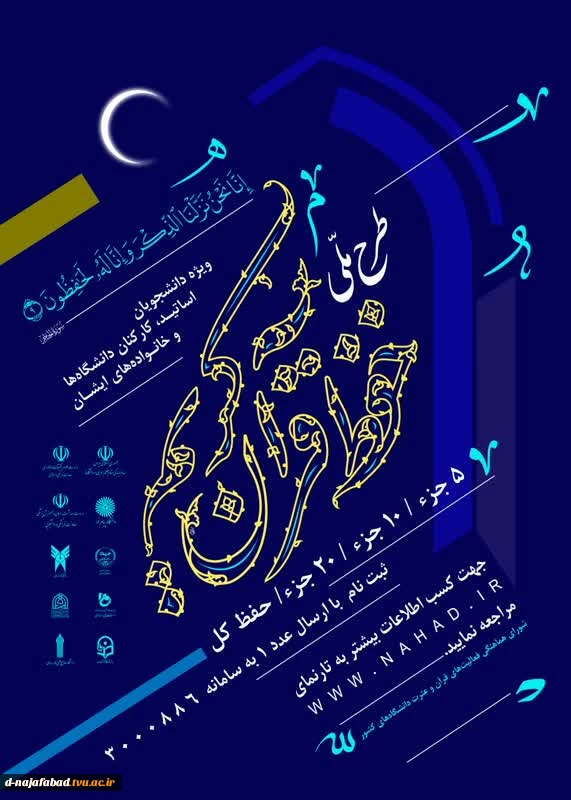 إِنَّا نَحْنُ نَزَّلْنَا الذِّكْرَ وَإِنَّا لَهُ لَحَافِظُونَ
ویژه دانشجویان
اساتید، کارکنان دانشگاه‌ها
و خانواده‌های ایشان
طرح ملّی
حفظ قرآن کریم
۵ جزء / ۱۰ جزء / ۲۰ جزء / حفظ کل
ثبت نام با ارسال عدد ۱ به سامانه ۳۰۰۰۸۸۶
جهت کسب اطلاعات بیشتر به تارنمای
WWW.NAHAD.IR
مراجعه نمایید.
شورای هماهنگی فعالیت‌های قرآن و عترت دانشگاه‌های کشور
d-najafabad.tvu.ac.ir